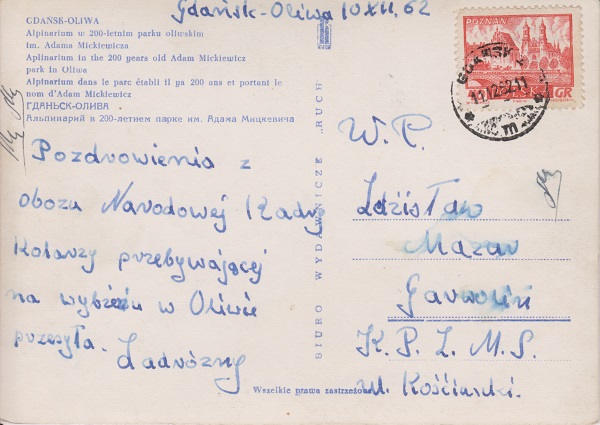 Gdańsk-Oliwa 10 XII. 62
GDAŃSK-OLIWA
Alpinarium w 200-letnim parku oliwskim
im. Adama Mickiewicza
Aplinarium in the 200 years old Adam Mickiewicz
park in Oliwa
Alpinarium dans le parc établi il ya 200 ans et portant le
nom d'Adam Mickiewicz
ГДАНЬСК-ОЛИВА
Альпинарий в 200-летнем парке им. Адама Мицкевича
Pozdrowienia z
obozu Narodowej Kadry
Kolarzy przebywającej
na wybrzeżu w Oliwie
przesyła.
Zadrożny
BIURO WYDAWNICZE „RUCH"
Wszelkie prawa zastrzeżone
POZNAŃ
POLSKA
GR
GDAŃSK
11.12.62.11
W. P.
Zdzisław
Mazur
Garwolin
K. P. Z. M. S.
ul. Kościuszki.